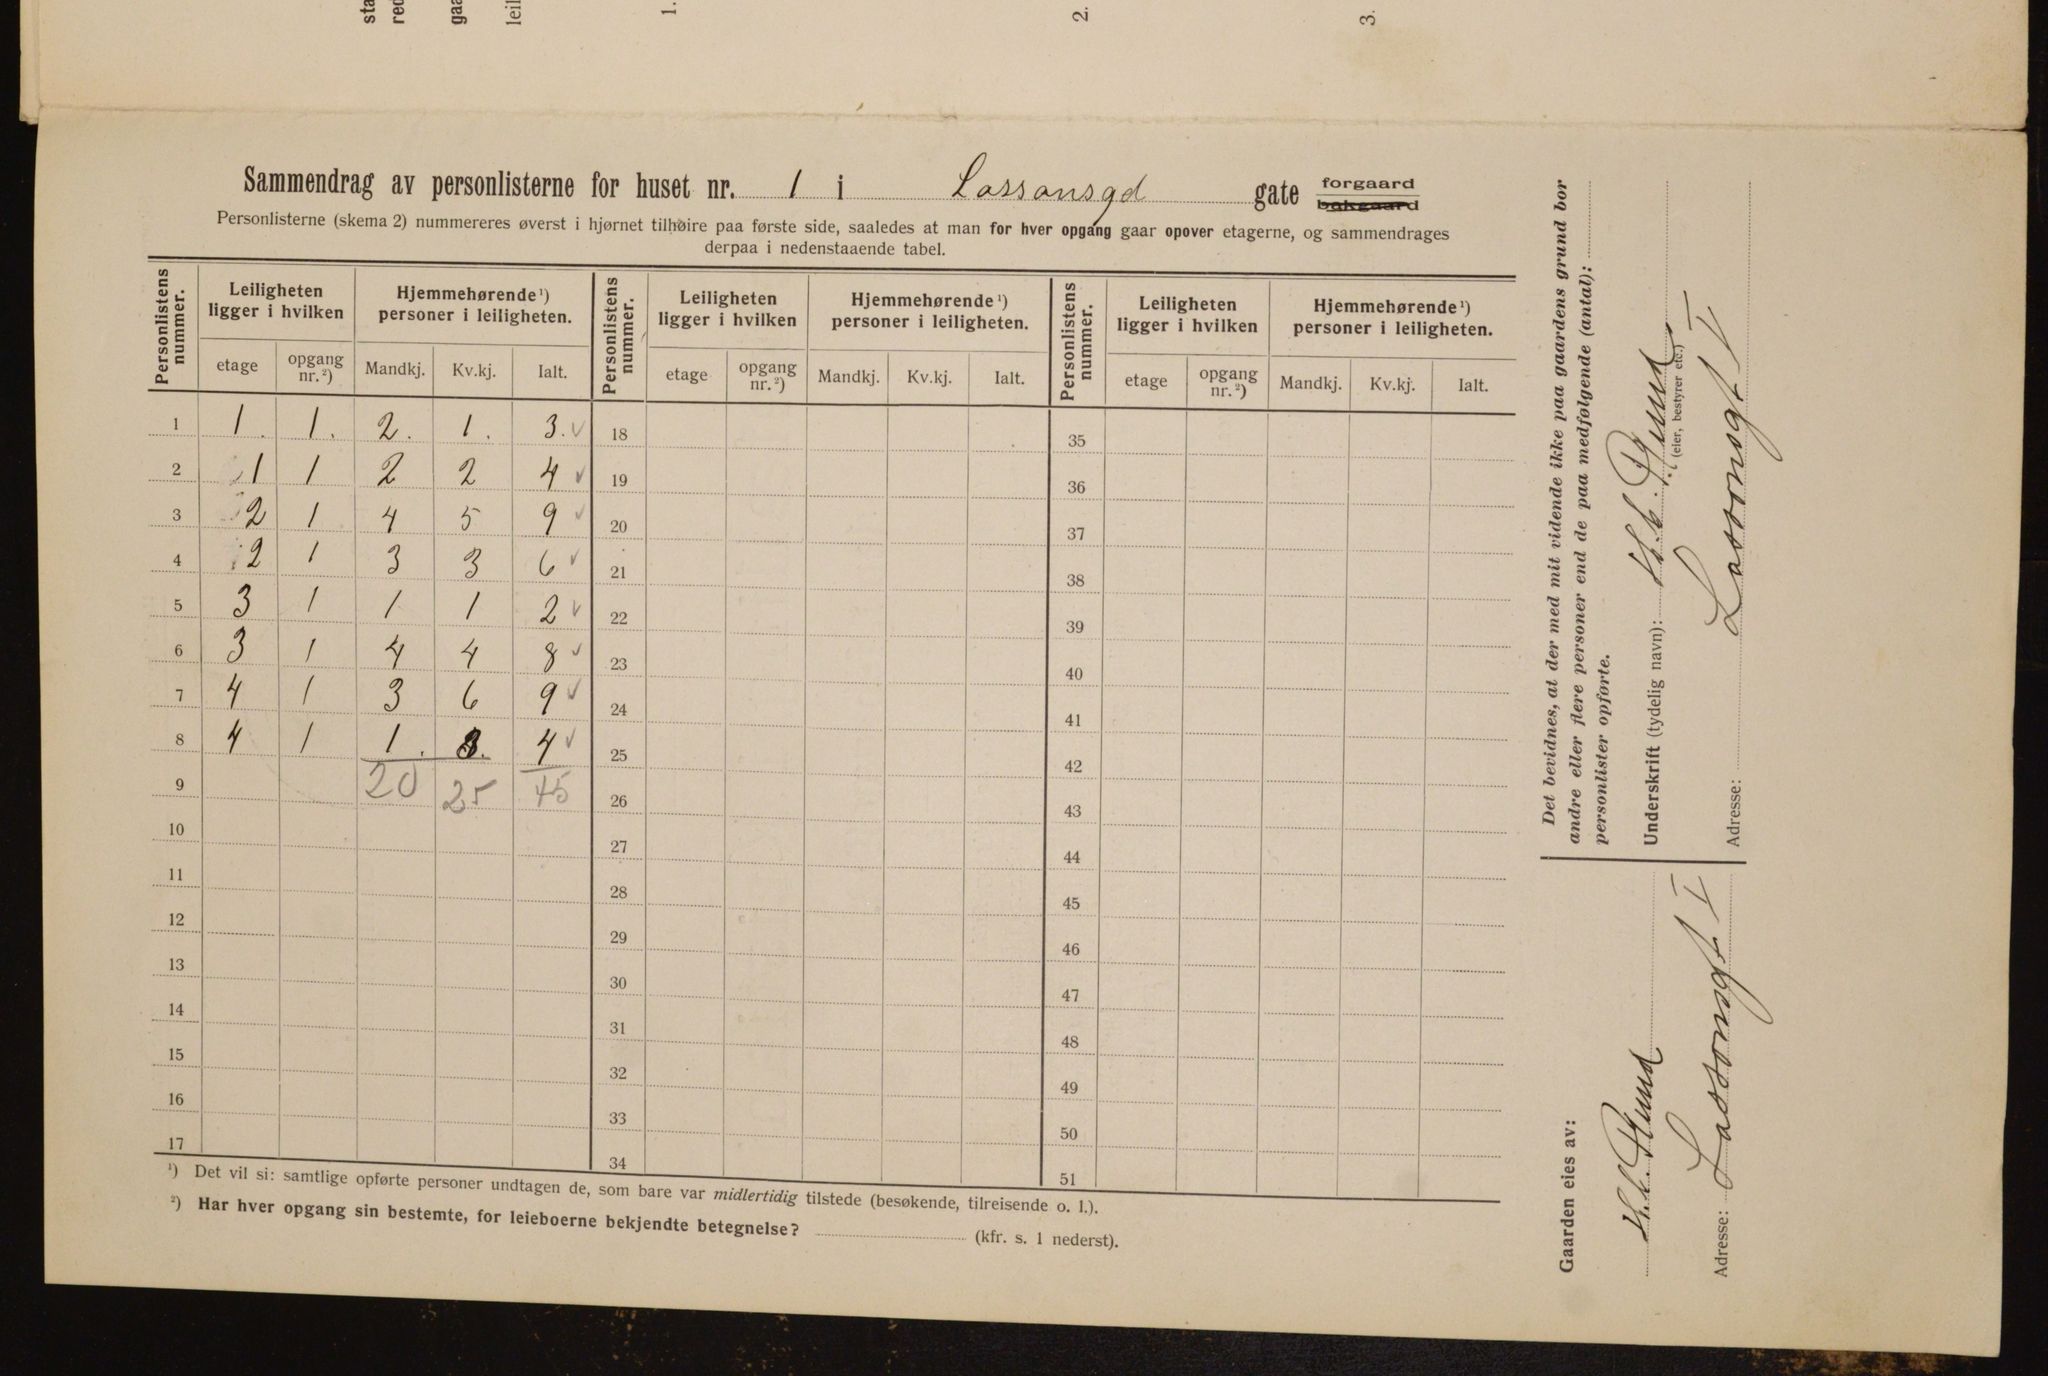 sta
red
gaa
leil
1.
2.
3.
Sammendrag av personlisterne for huset nr. 1 i Lassonsgd gate forgaard
bakgaard
Personlisterne (skema 2) nummereres øverst i hjørnet tilhøire paa første side, saaledes at man for hver opgang gaar opover etagerne, og sammendrages
derpaa i nedenstaaende tabel.
Personlistens nummer. Leiligheten ligger i hvilken Hjemmehørende¹) personer i leiligheten. Personlistens nummer. Leiligheten ligger i hvilken Hjemmehørende¹) personer i leiligheten. Personlistens nummer. Leiligheten ligger i hvilken Hjemmehørende¹) personer i leiligheten.
etage opgang nr.²) Mandkj. Kv.kj. Ialt. etage opgang nr.²) Mandkj. Kv.kj. Ialt. etage opgang nr.²) Mandkj. Kv.kj. Ialt.
1 1. 1. 2. 1. 3. ✓ 18 35
2 1 1 2 2 4 ✓ 19 36
3 2 1 4 5 9 ✓ 20 37
4 2 1 3 3 6 ✓ 21 38
5 3 1 1 1 2 ✓ 22 39
6 3 1 4 4 8 ✓ 23 40
7 4 1 3 6 9 ✓ 24 41
8 4 1 1. 3. 4 ✓ 25 42
9 20 25 45 26 43
10 27 44
11 28 45
12 29 46
13 30 47
14 31 48
15 32 49
16 33 50
17 34 51
¹) Det vil si: samtlige opførte personer undtagen de, som bare var midlertidig tilstede (besøkende, tilreisende o. l.).
²) Har hver opgang sin bestemte, for leieboerne bekjendte betegnelse? (kfr. s. 1 nederst).
Det bevidnes, at der med mit vidende ikke paa gaardens grund bor
andre eller flere personer end de paa medfølgende (antal):
personlister opførte.
Underskrift (tydelig navn):
(eier, bestyrer etc.)
Adresse: Lassonsgt 1
Gaarden eies av:
Adresse: Lassonsgt 1